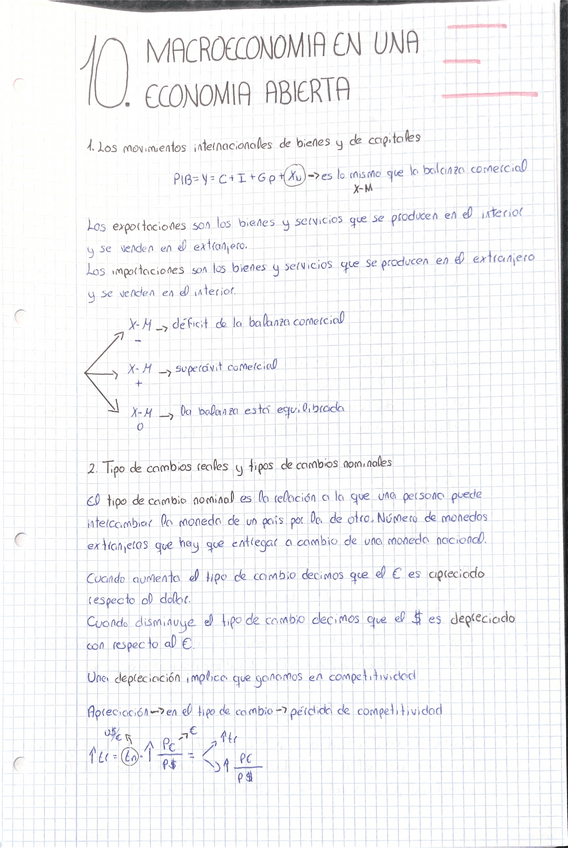 10. MACROECONOMIA EN UNA
ECONOMIA ABIERTA
1. Los movimientos internacionales de bienes y de capitales
PIB = Y = C + I + Gp + XN → es lo mismo que la balanza comercial
X-M
Las exportaciones son los bienes y servicios que se producen en el interior
y se venden en el extranjero.
Las importaciones son los bienes y servicios que se producen en el extranjero
y se venden en el interior.
X-M → déficit de la balanza comercial
-
X-M → superávit comercial
+
X-M → la balanza está equilibrada
0
2. Tipo de cambios reales y tipos de cambios nominales
El tipo de cambio nominal es la relación a la que una persona puede
intercambiar la moneda de un país por la de otro. Número de monedas
extranjeras que hay que entregar a cambio de una moneda nacional.
Cuando aumenta el tipo de cambio decimos que el € es apreciado
respecto al dólar.
Cuando disminuye el tipo de cambio decimos que el $ es depreciado
con respecto al €.
Una depreciación implica que ganamos en competitividad
Apreciación → en el tipo de cambio → pérdida de competitividad
↑tr = tn · ↑ P€ / P$ = ↑tr
↑ P€ / P$